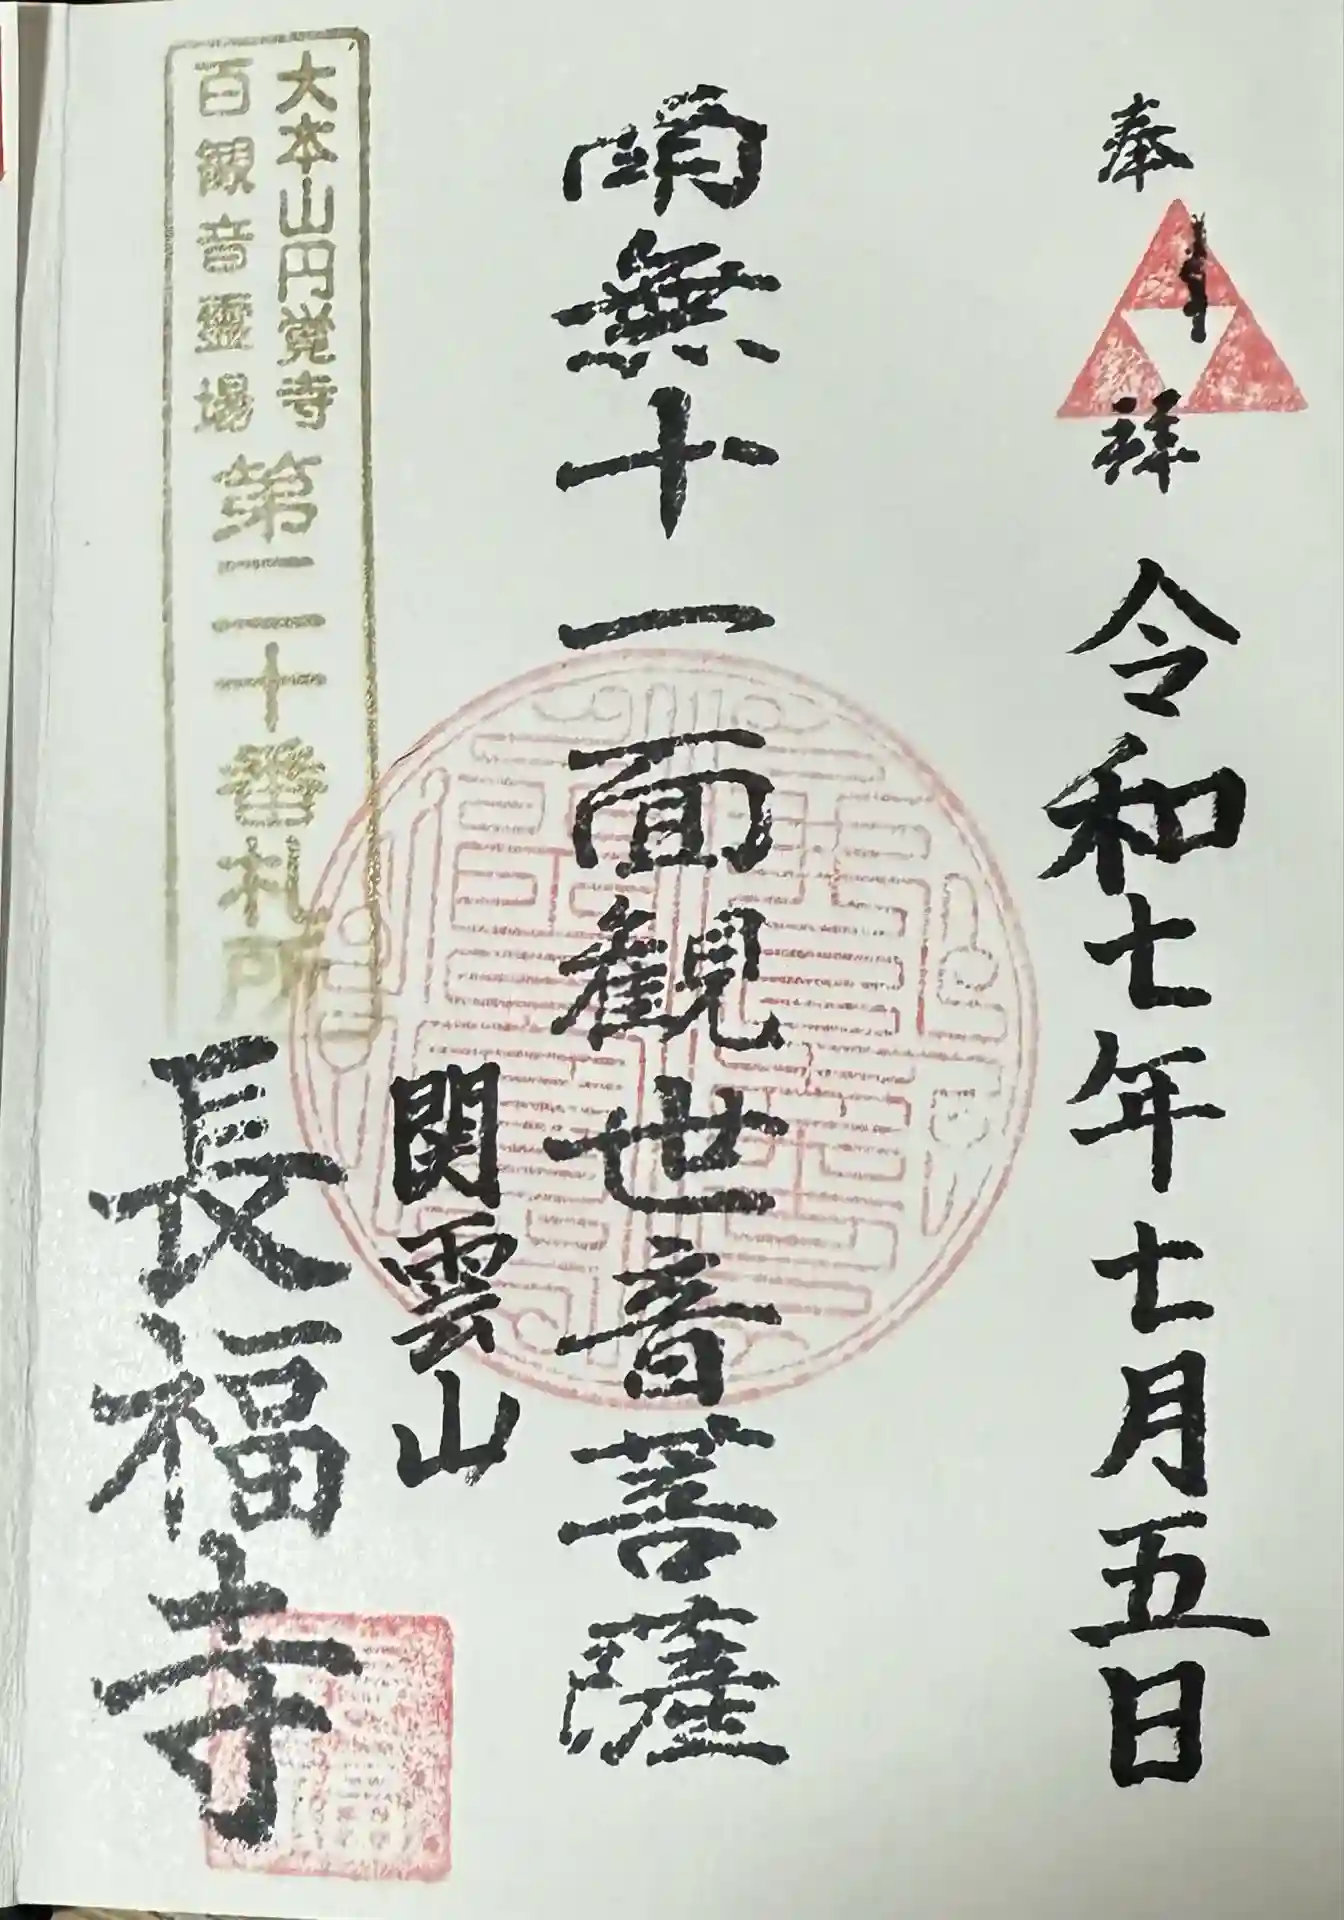 奉拝
令和七年七月五日
南無十一面観世音菩薩
関雲山
長福寺
大本山円覚寺
百観音霊場
第二十番札所